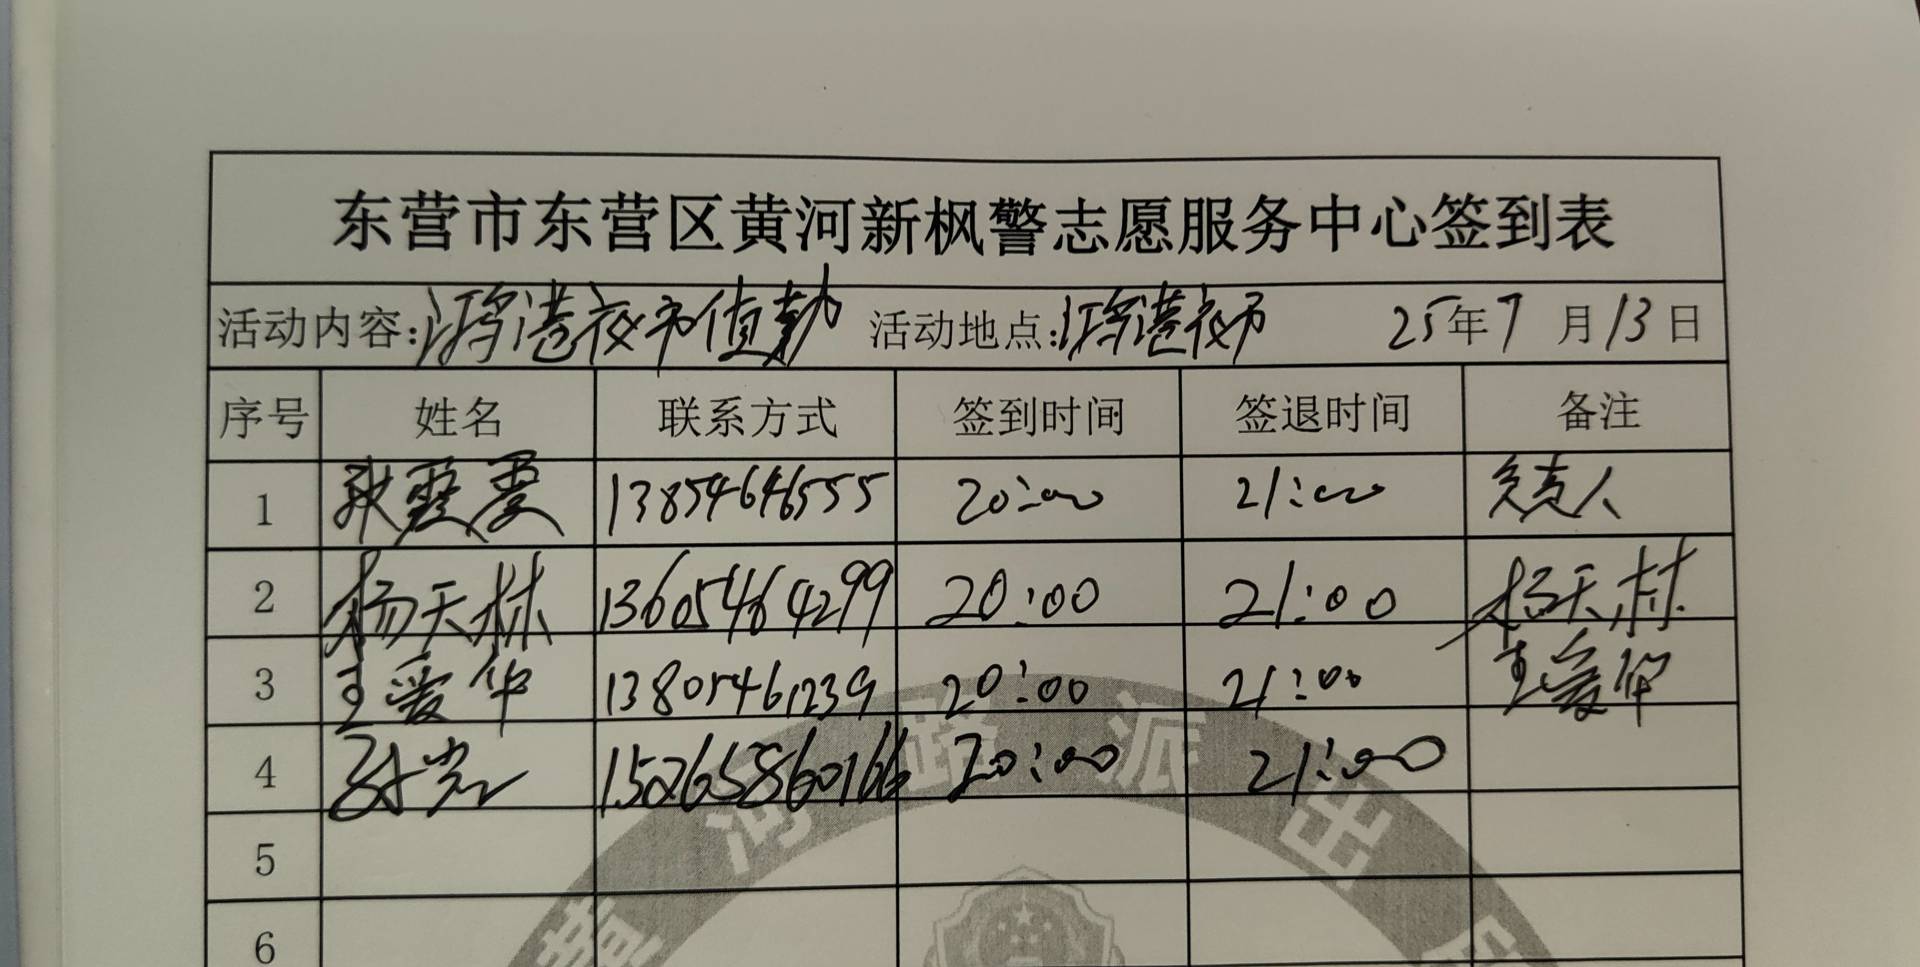 东营市东营区黄河新枫警志愿服务中心签到表
活动内容:鸿港夜市值勤 活动地点:鸿港夜市 25年7月13日
序号 姓名 联系方式 签到时间 签退时间 备注
1 13854646555 20:00 21:00 负责人
2 杨天林 13605464299 20:00 21:00 杨天林
3 王爱华 13805461239 20:00 21:00 王爱华
4 15265860166 20:00 21:00
5
6
黄河路派出所